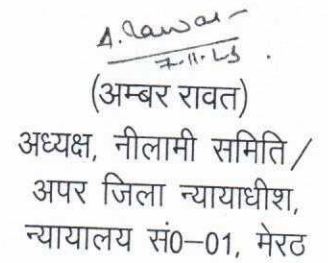 A. Rawat
7.11.23.
(अम्बर रावत)
अध्यक्ष, नीलामी समिति/
अपर जिला न्यायाधीश,
न्यायालय सं0-01, मेरठ